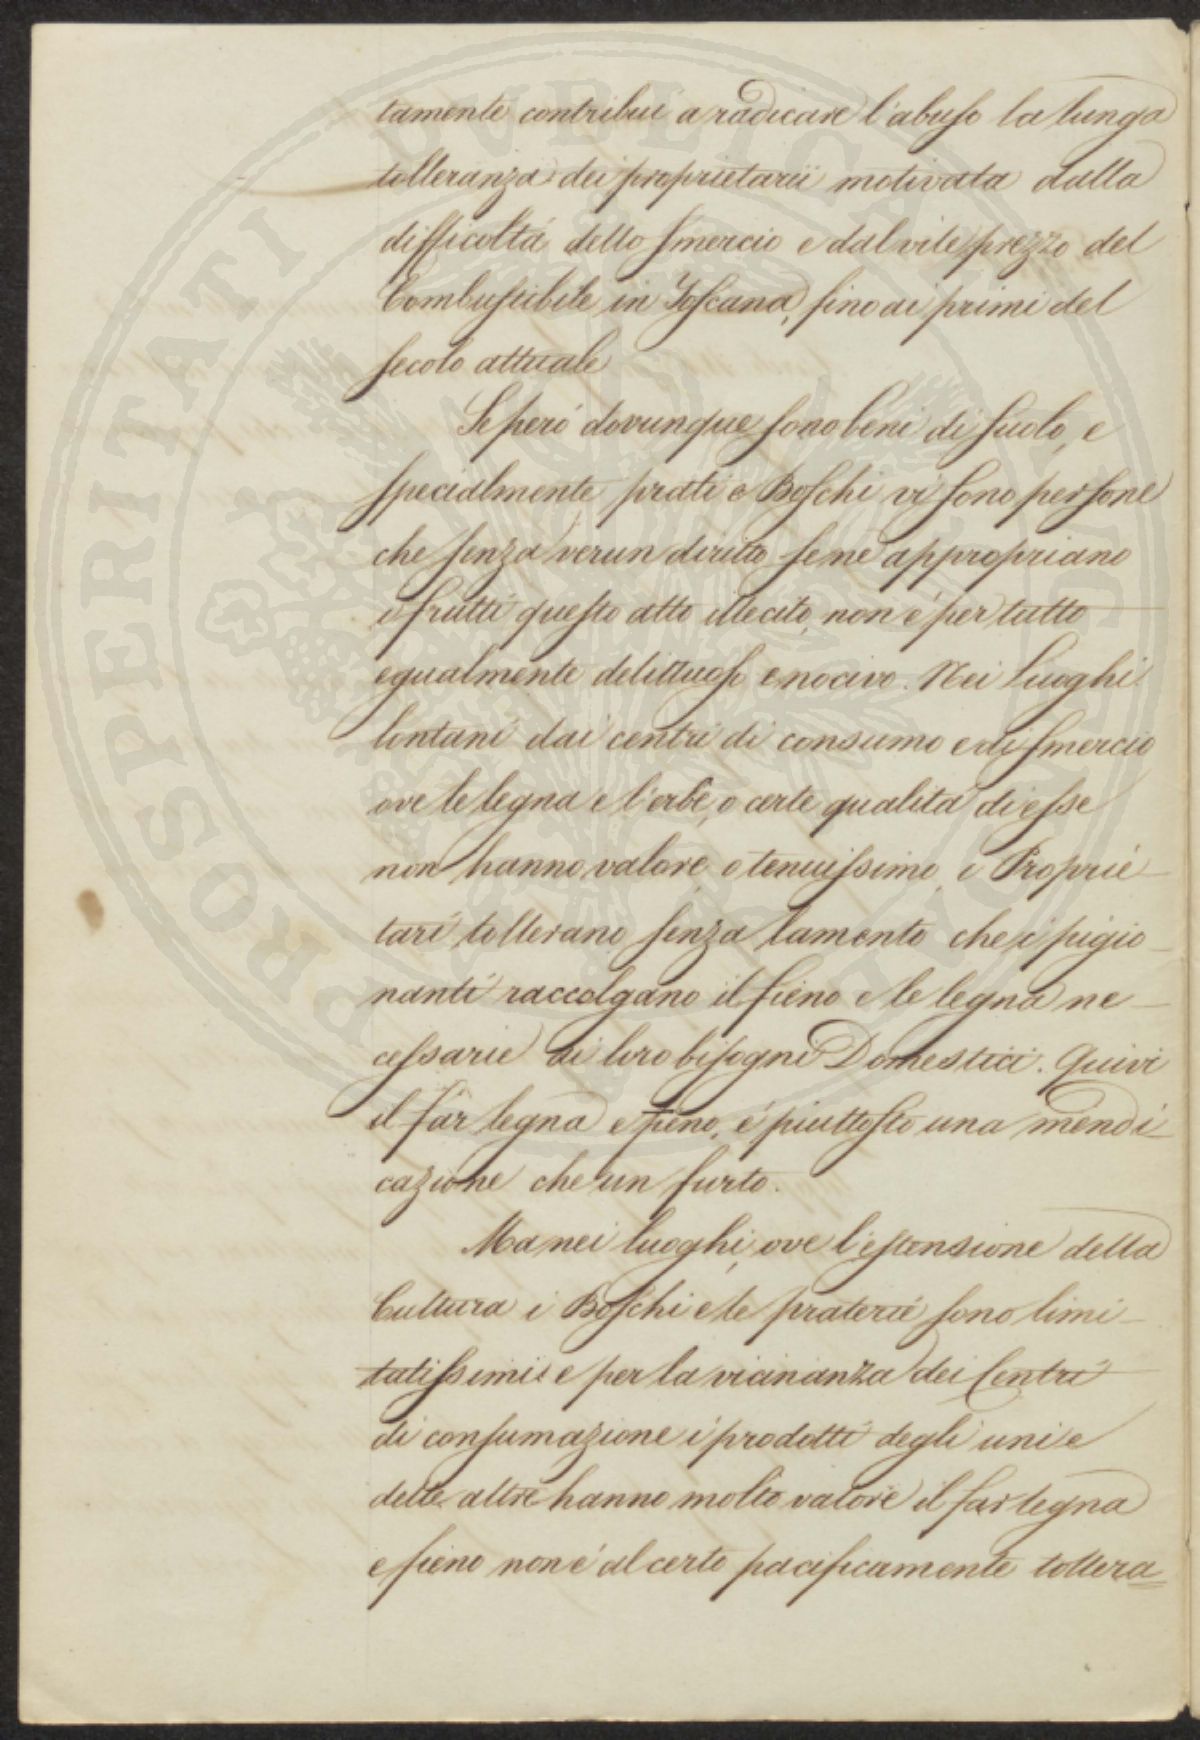 tamente contribuì a radicare l'abuso la lunga
tolleranza dei proprietarii motivata dalla
difficoltà dello smercio e dal vile prezzo del
Combustibile in Toscana, fino ai primi del
secolo attuale
Se però dovunque sono beni di suolo, e
specialmente prati e Boschi vi sono persone
che senza verun diritto se ne appropriano
i frutti questo atto illecito, non è per tutto
egualmente delittuoso e nocivo. Nei Luoghi
lontani dai centri di consumo e di smercio
ove le legna e l'erbe, o certe qualità di esse
non hanno valore o tenuissimo, i Proprie-
tari tollerano senza lamento che i pigio-
nanti raccolgano il fieno e le legna ne-
cessarie ai loro bisogni Domestici. Quivi
il far legna e fieno, è piuttosto una mendi-
cazione che un furto.
Ma nei luoghi, ove l'estensione della
Cultura i Boschi e le praterie sono limi-
tatissimi e per la vicinanza dei Centri
di consumazione i prodotti degli uni e
delle altre hanno molto valore il far legna
e fieno non è al certo pacificamente tollera=
PROSPERITATI PVBLICAE